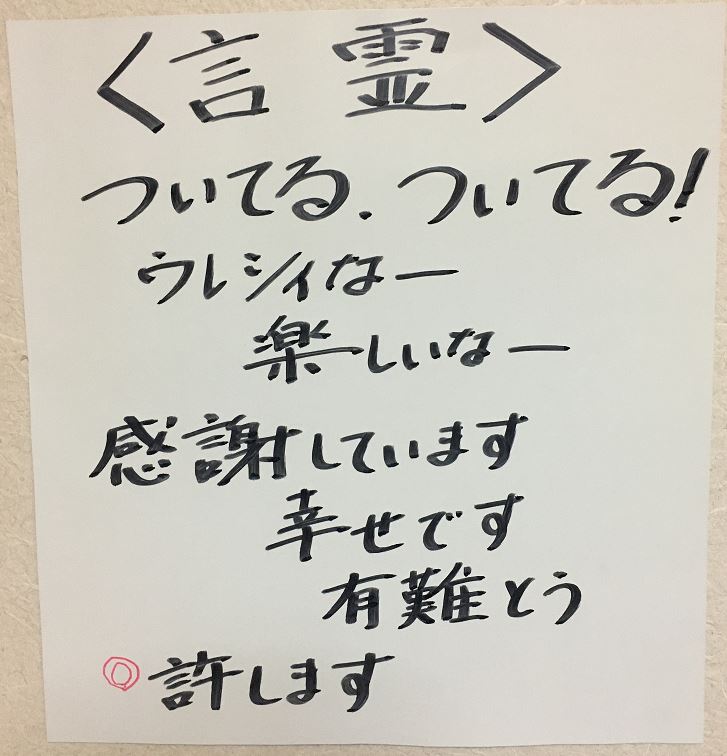 〈言霊〉
ついてる.ついてる!
ウレシィなー
楽しいなー
感謝しています
幸せです
有難とう
◎許します